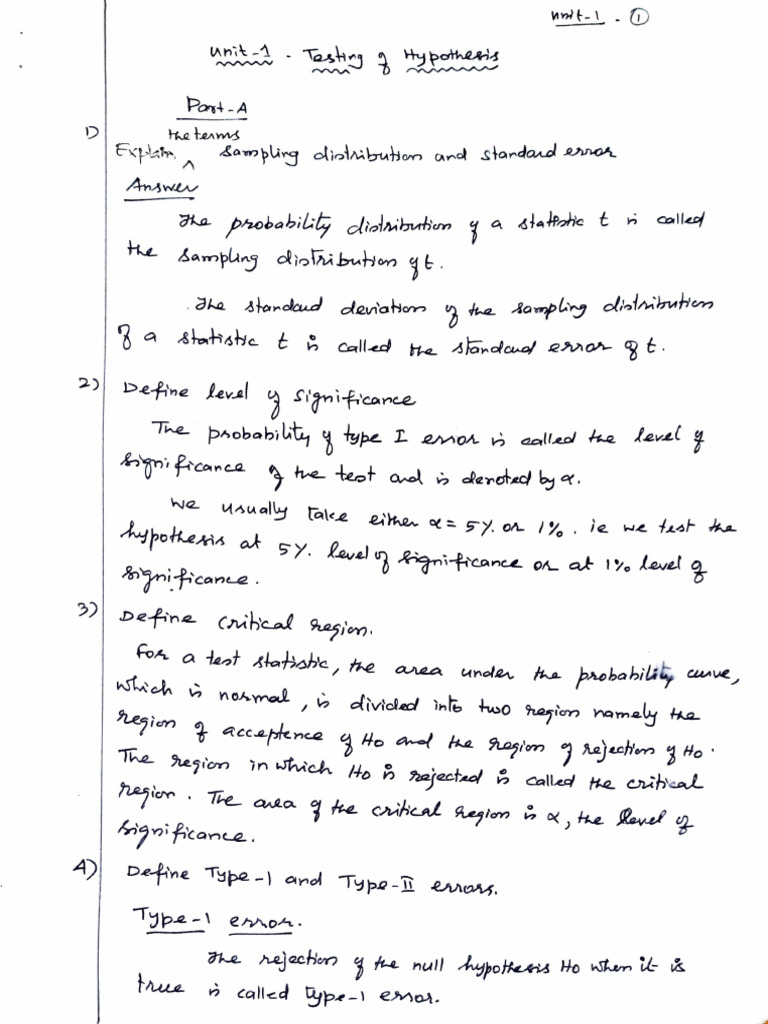 Unit-1 - ①
Unit-1 - Testing of Hypothesis
Part-A
1) Explain the terms sampling distribution and standard error
Answer
The probability distribution of a statistic t is called
the sampling distribution of t.
The standard deviation of the sampling distribution
of a statistic t is called the standard error of t.
2) Define level of significance
The probability of type I error is called the level of
significance of the test and is denoted by α.
We usually take either α = 5% or 1%. ie we test the
hypothesis at 5% level of significance or at 1% level of
significance.
3) Define critical region.
For a test statistic, the area under the probability curve,
which is normal, is divided into two region namely the
region of acceptence of Ho and the region of rejection of Ho.
The region in which Ho is rejected is called the critical
region. The area of the critical region is α, the level of
significance.
4) Define Type-1 and Type-II errors.
Type-1 error.
The rejection of the null hypothesis Ho when it is
true is called type-1 error.